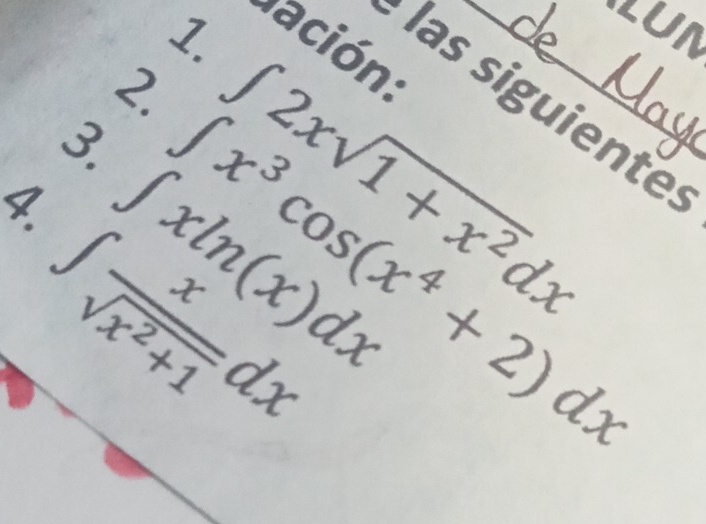 de Mayo
las siguientes
ación:
1. ∫ 2x√(1 + x²) dx
2. ∫ x³ cos(x⁴ + 2) dx
3. ∫ xln(x)dx
4. ∫ x/√(x²+1) dx